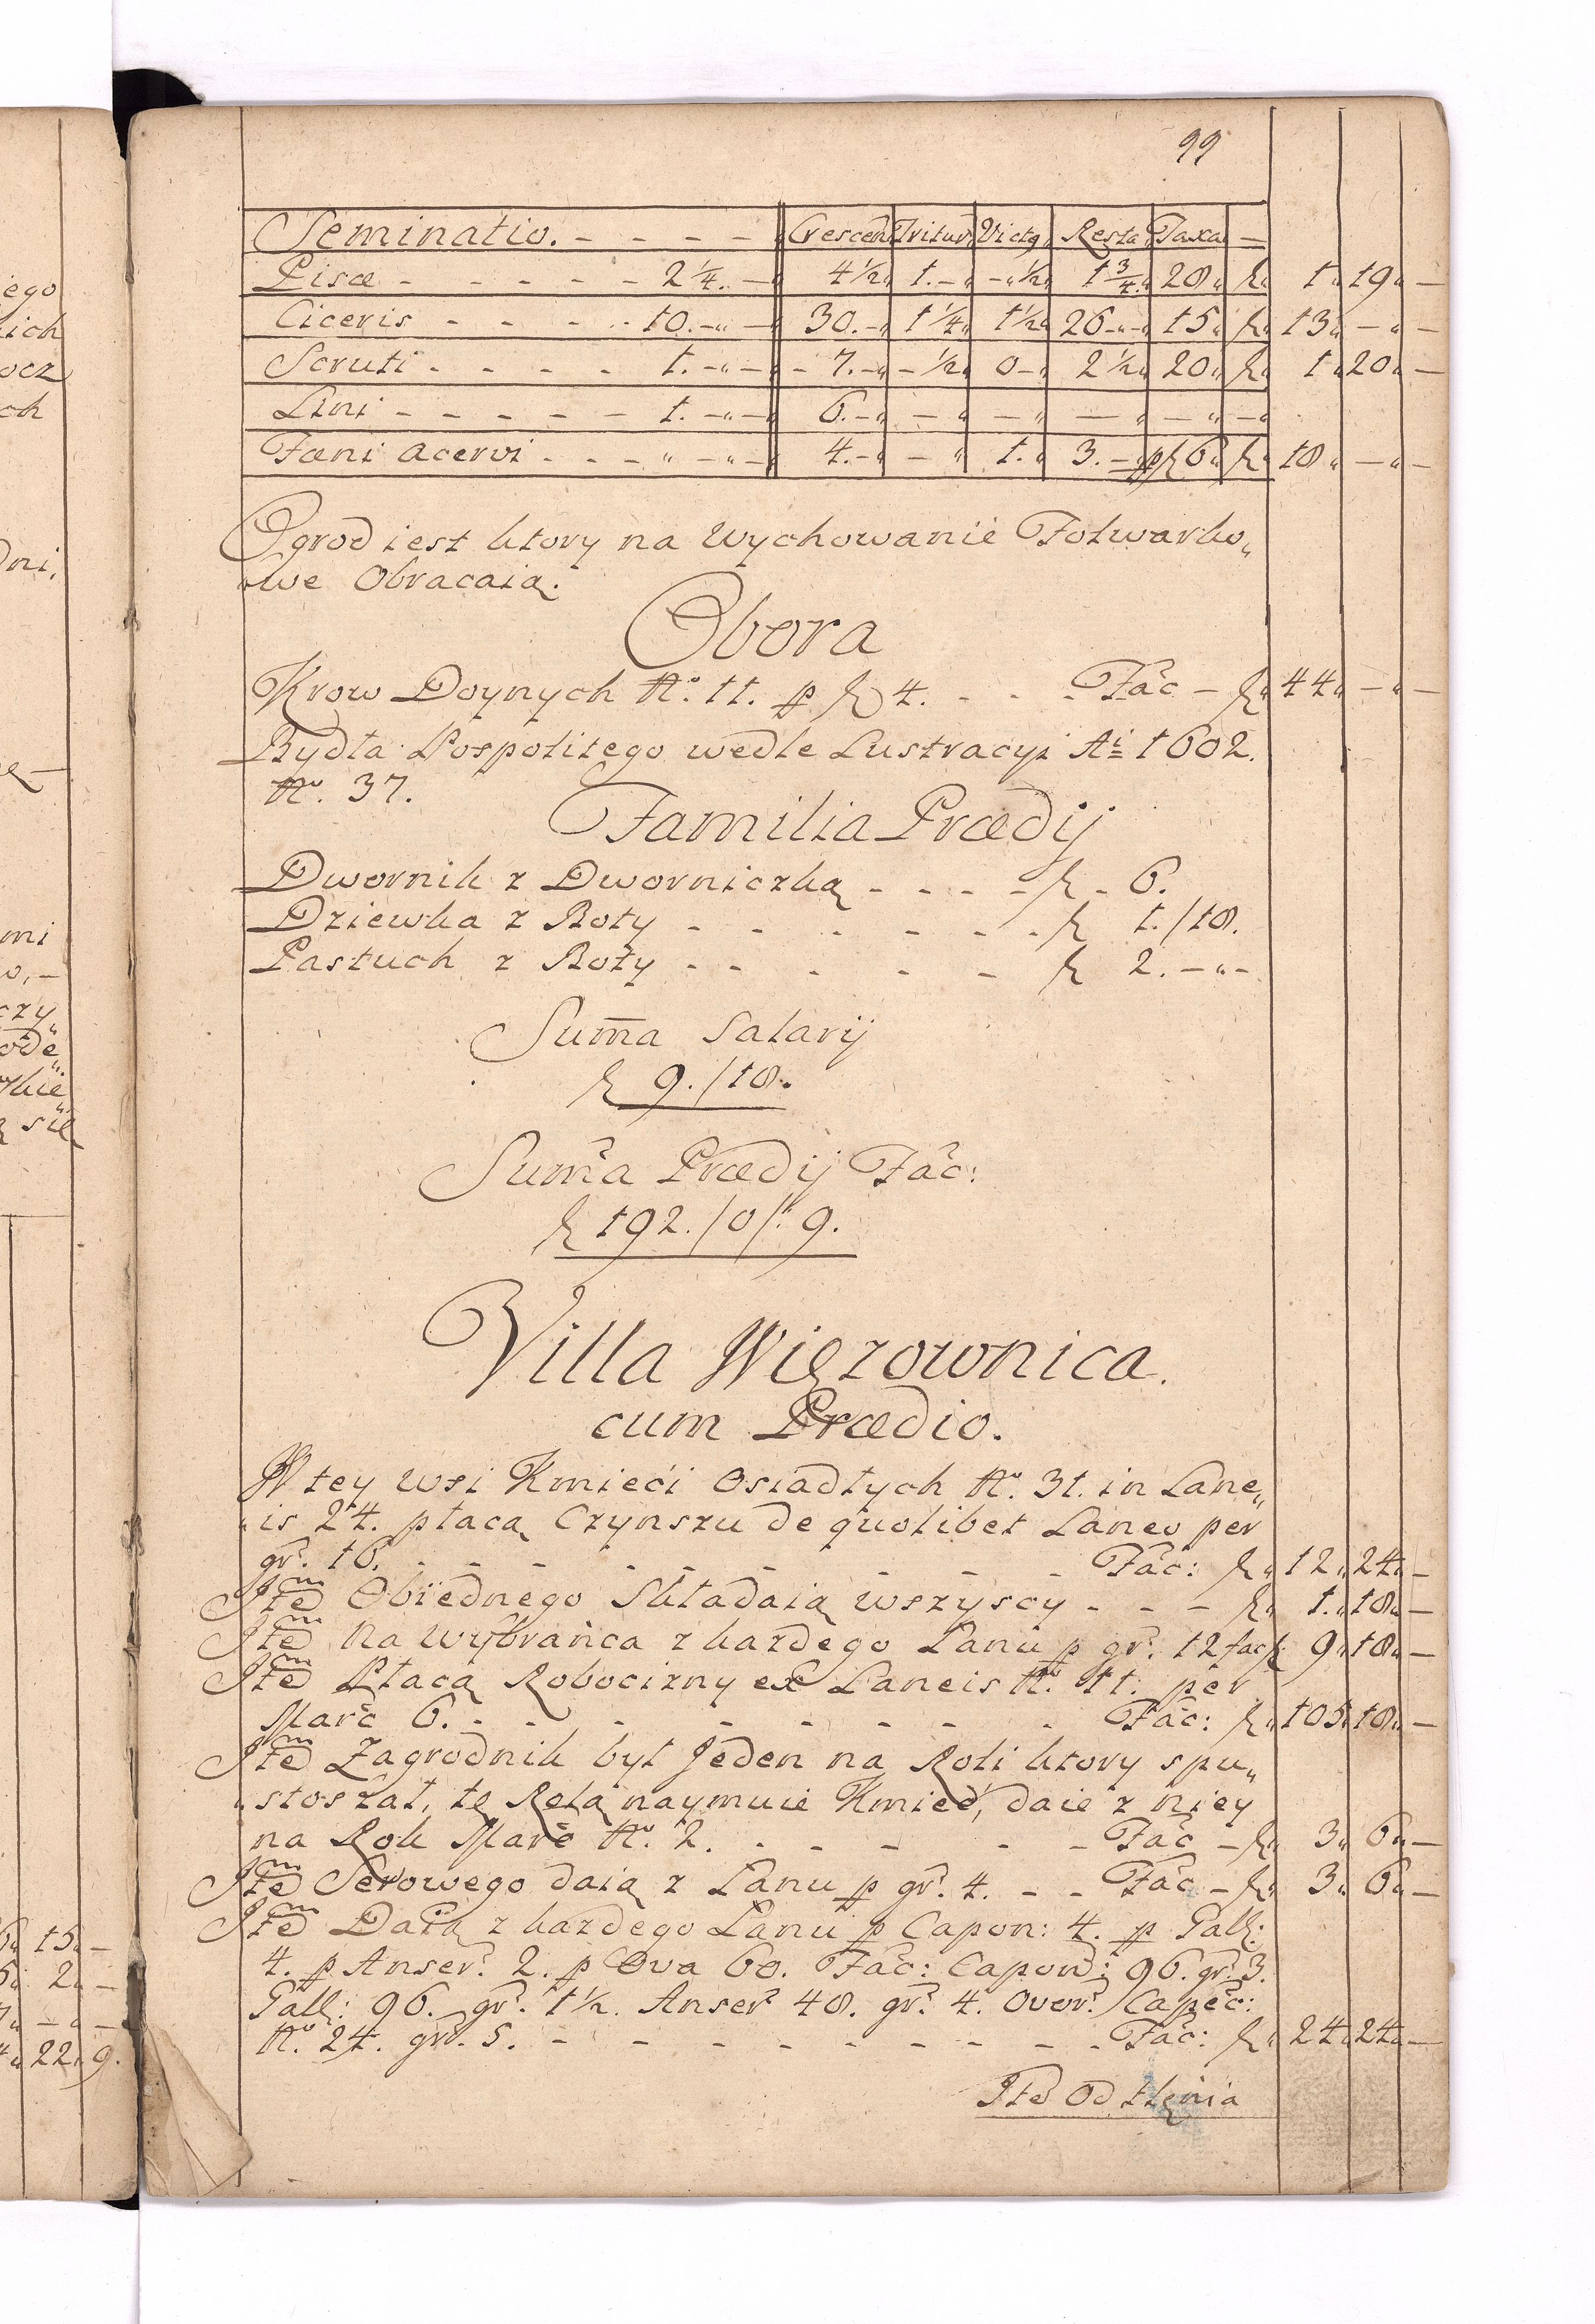 99
Seminatio. - - - - - Crescen Tritur Victq Resta Taxa —
Pisæ - - - - - 2 1/4. — 4 1/2 1. - - 1/2 1 3/4 20 f 1 19 —
Ciceris - - - - 10. - — 30. - 1 1/4 1 1/2 26 - 15 f 13 — —
Scruti - - - - 1. - — 7. - - 1/2 0 - 2 1/2 20 f 1 20 —
Lini - - - - - 1. - — 6. - — — — — —
Fæni acervi - - - - - — 4. - - 1. 3. - p f 6 f 18 — —
Ogrod iest ktory na Wychowanie Folwarko„
„we Obracaią.
Obora
Krow Doynych No. 11. p f 4. - - - Fac̃ - f 44 — —
Bydła Pospolitego wedle Lustracyi Ai 1602.
No. 37.
Familia Prædij
Dwornik z Dworniczką - - - - f - 6.
Dziewka z Roty - - - - - - f 1./18.
Pastuch z Roty - - - - - f 2. - -
Sum̃a Salarij
f 9./18.
Sum̃a Prædij Fac̃:
f 192./0/. 9.
Villa Więzownica.
cum Prædio.
W tey wsi Kmieci Osiadłych No. 31. in Lane„
„is 24. płacą Czynszu de quolibet Laneo per
gr. 16. - - - - - - - - Fac̃: f 12 24 —
Itẽm Obiednego Składaią wszyscy - - - f 1. 18 —
Itẽm Na Wybrańca z każdego Lanu p gr. 12 fac f 9 18 —
Itẽm Płacą Robocizny ex Laneis No. 11. per
Marc̃ 6. - - - - - - - - Fac̃: f 105 18 —
Itẽm Zagrodnik był Jeden na Roli ktory spu„
„stoszał, tę Rolą naymuie Kmieć, daie z niey
na Rok Marc̃ No. 2. - - - - - - Fac̃ - f 3 6 —
Itẽm Serowego daią z Lanu p gr. 4. - - Fac̃ - f 3 6 —
Itẽm Daią z każdego Lanu p Capon: 4. p Gall:
4. p Anser. 2. p Ova 60. Fac̃: Capon: 96. gr. 3.
Gall: 96. gr. 1 1/2. Anser 48. gr. 4. Ovor. Capec̃:
No. 24. gr. 5. - - - - - - - - Fac̃: f 24 24 —
Itẽ Od